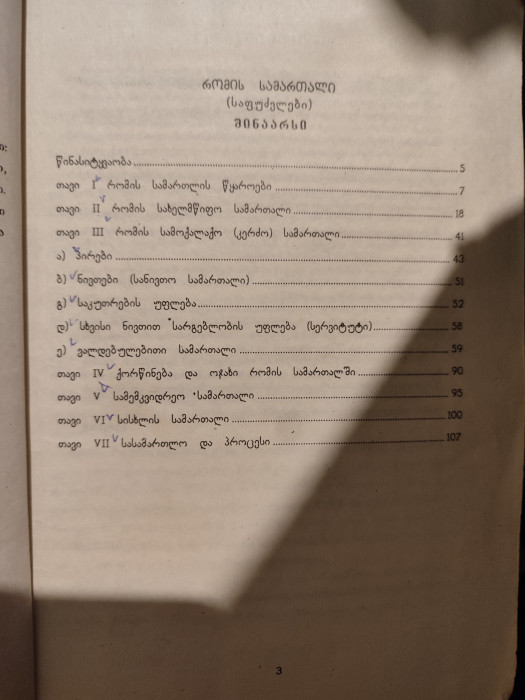 რომის სამართალი
(საფუძვლები)
შინაარსი
წინასიტყვაობა 5
თავი I რომის სამართლის წყაროები 7
თავი II რომის სახელმწიფო სამართალი 18
თავი III რომის სამოქალაქო (კერძო) სამართალი 41
ა) პირები 43
ბ) ნივთები (სანივთო სამართალი) 51
გ) საკუთრების უფლება 52
დ) სხვისი ნივთით სარგებლობის უფლება (სერვიტუტი) 58
ე) ვალდებულებითი სამართალი 59
თავი IV ქორწინება და ოჯახი რომის სამართალში 90
თავი V სამემკვიდრეო სამართალი 95
თავი VI სისხლის სამართალი 100
თავი VII სასამართლო და პროცესი 107
3